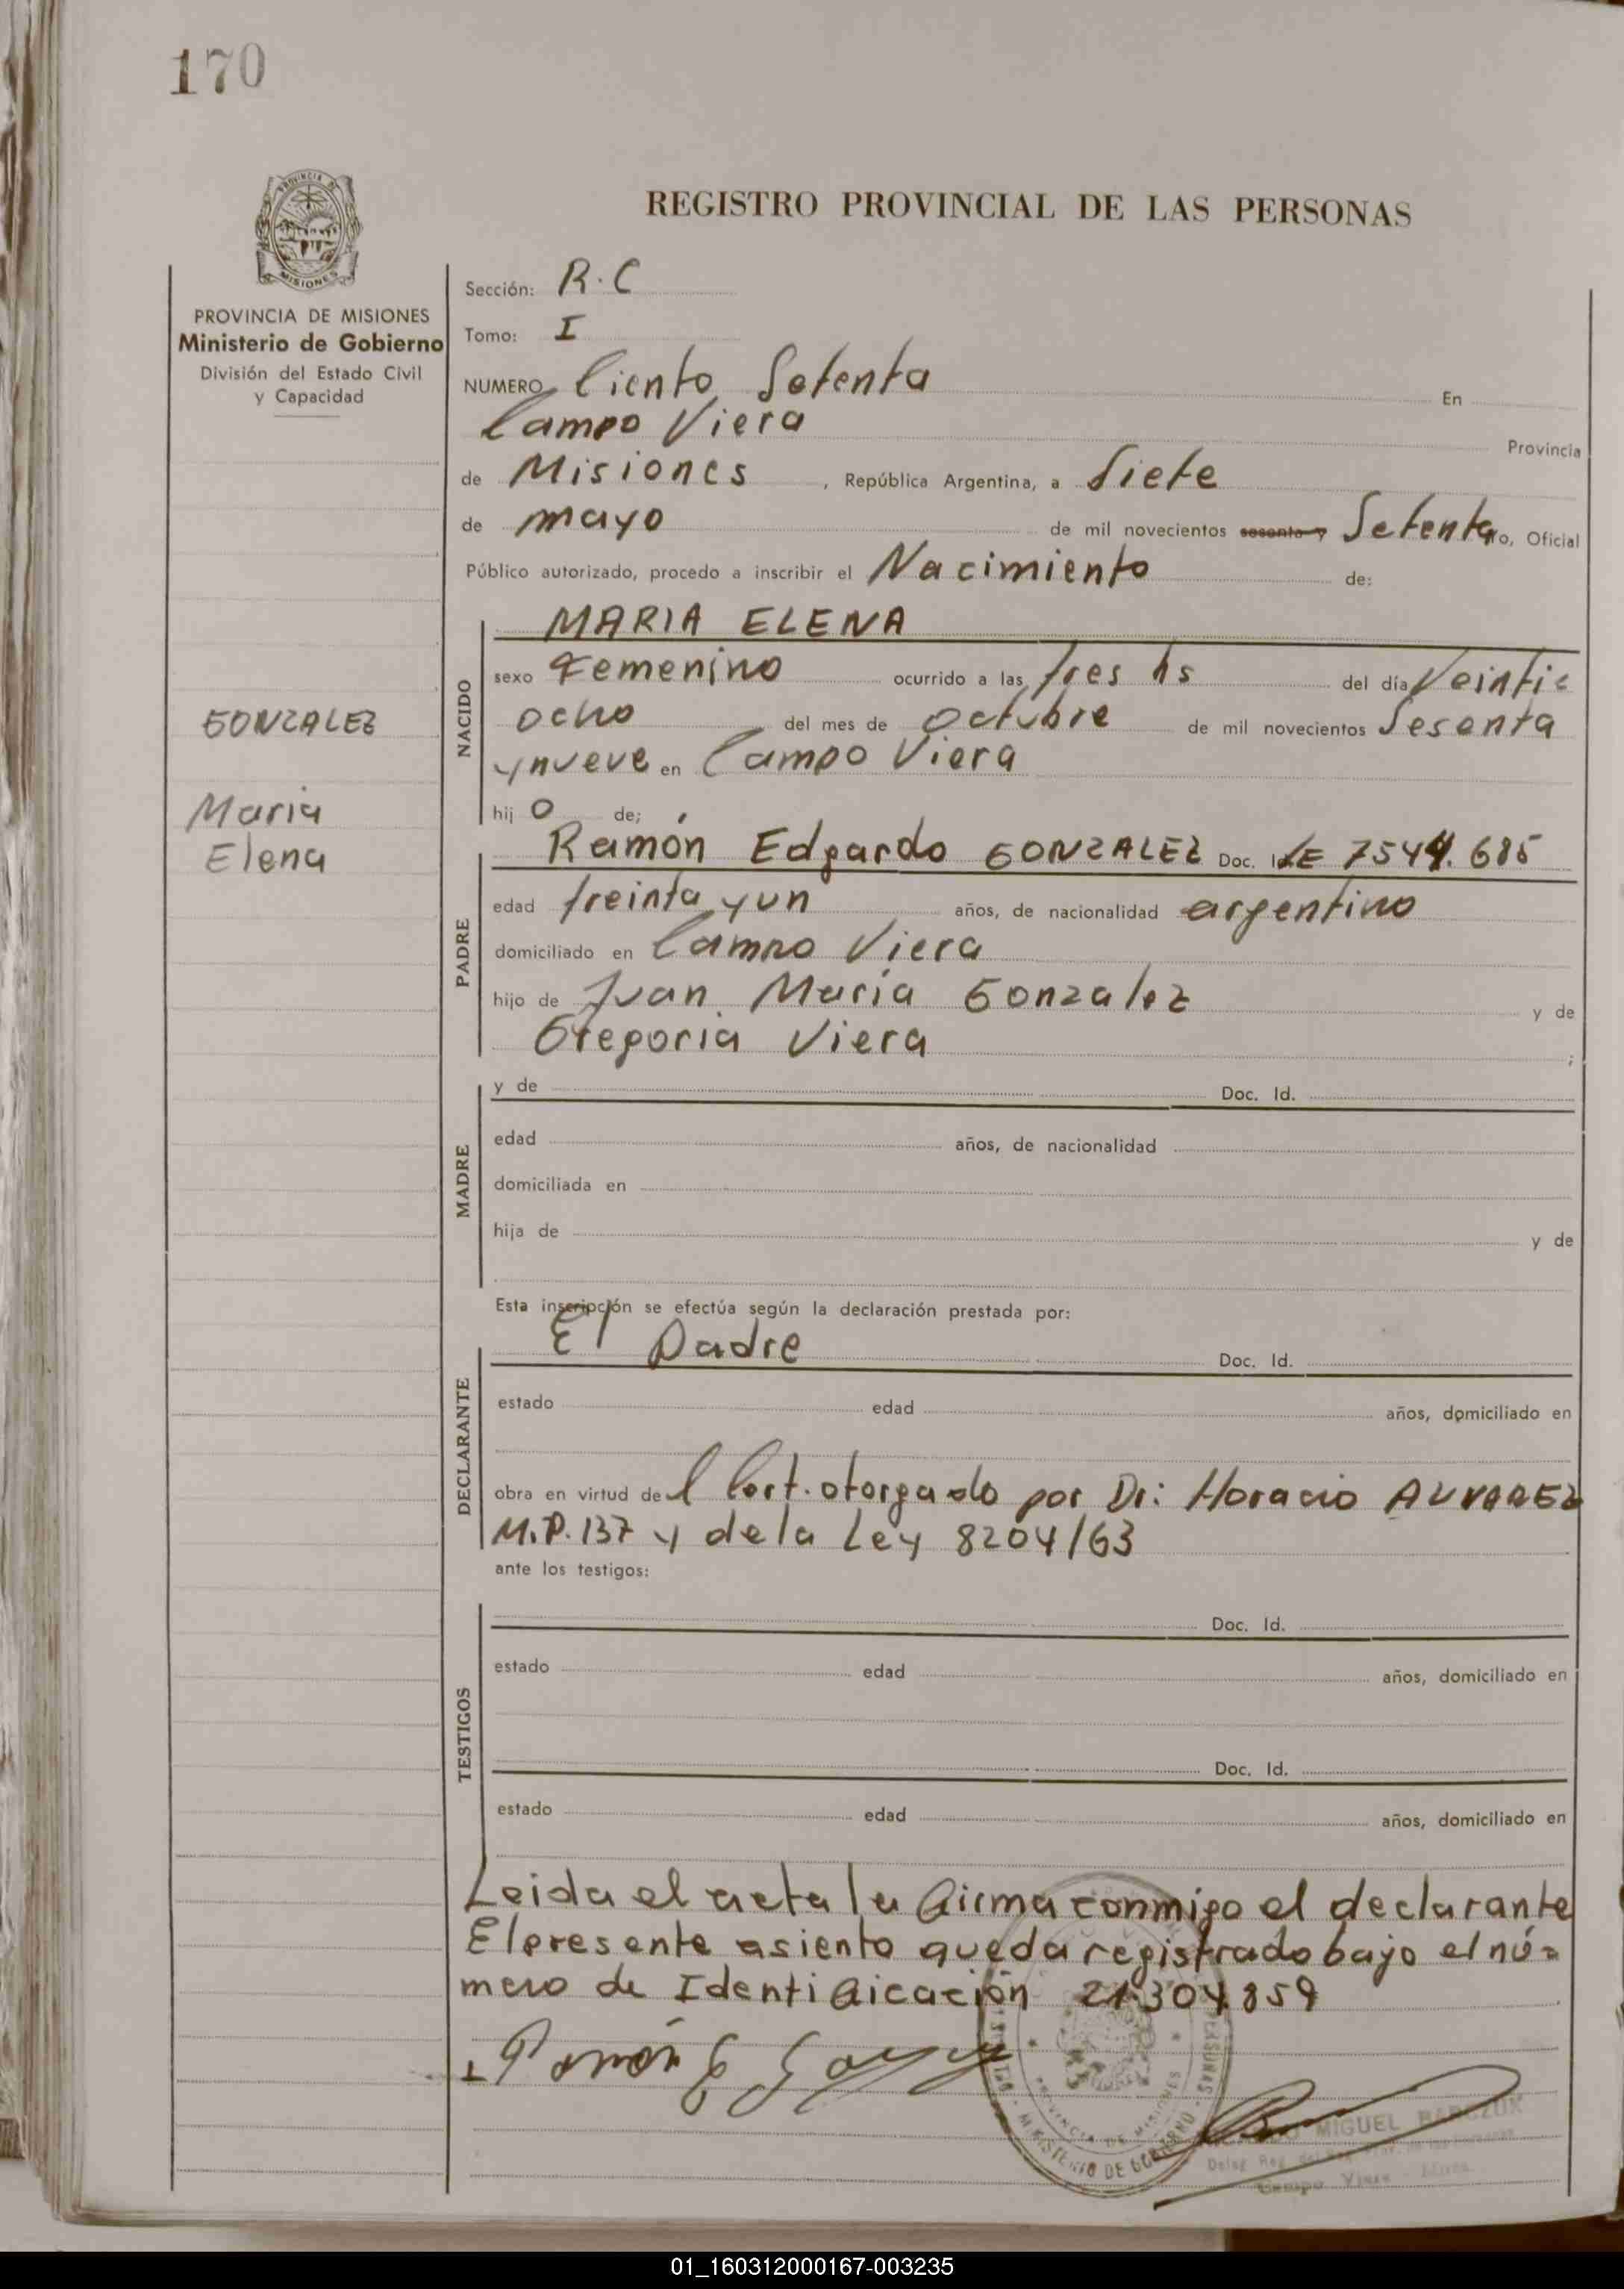 170
PROVINCIA DE
MISIONES
REGISTRO PROVINCIAL DE LAS PERSONAS
PROVINCIA DE MISIONES
Ministerio de Gobierno
División del Estado Civil
y Capacidad
Sección: R.C
Tomo: I
NUMERO Ciento Setenta En
Campo Viera Provincia
de Misiones, República Argentina, a Siete
de mayo de mil novecientos sesenta y Setenta yo, Oficial
Público autorizado, procedo a inscribir el Nacimiento de:
NACIDO
MARIA ELENA
sexo Femenino ocurrido a las tres hs del día Veintio
ocho del mes de octubre de mil novecientos Sesenta
y nueve en Campo Viera
hij o de;
GONZALEZ
Maria
Elena
PADRE
Ramón Edgardo GONZALEZ Doc. Id LE 7544.685
edad treinta y un años, de nacionalidad argentino
domiciliado en Campo Viera
hijo de Juan María Gonzalez y de
Gregoria Viera ;
MADRE
y de Doc. Id.
edad años, de nacionalidad
domiciliada en
hija de y de
Esta inscripción se efectúa según la declaración prestada por:
DECLARANTE
El Padre Doc. Id.
estado edad años, domiciliado en
obra en virtud del Cert. otorgado por Dr: Horacio ALVAREZ
M.P.137 y de la Ley 8204/63
ante los testigos:
TESTIGOS
Doc. Id.
estado edad años, domiciliado en
Doc. Id.
estado edad años, domiciliado en
Leida el acta la firma conmigo el declarante
El presente asiento queda registrado bajo el nú=
mero de Identificación 21.304.859
Ramón E Gonzalez
PROVINCIA DE MISIONES
MINISTERIO DE GOBIERNO
PERSONAS
MIGUEL BARCZUK
Campo Viera
01_160312000167-003235